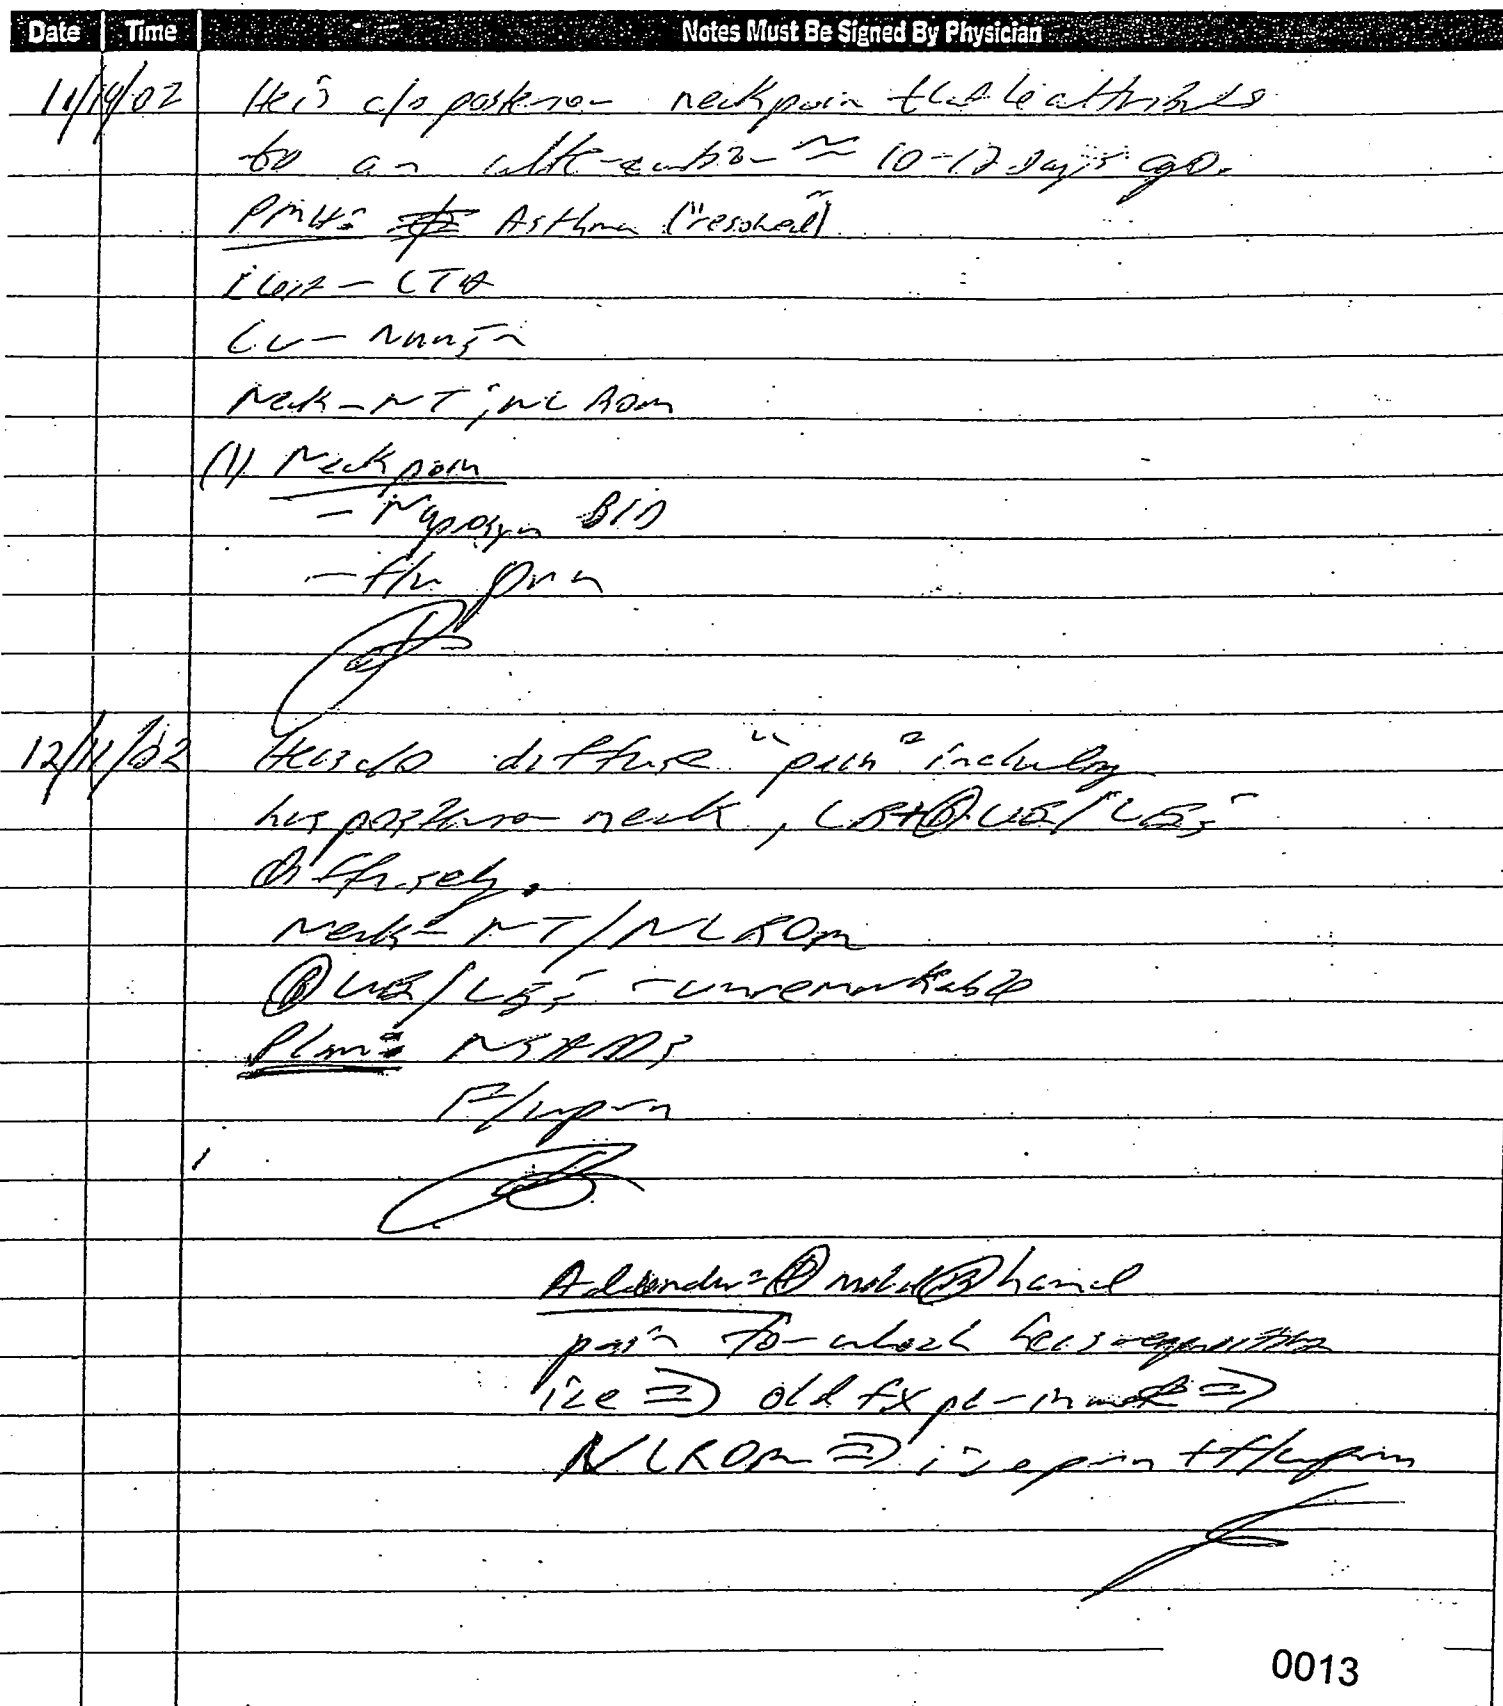 Date Time Notes Must Be Signed By Physician
11/19/02 He is c/o posterior neck pain that he attributes
to an altercation ≈ 10-12 days ago.
PMH: Asthma ("resolved")
- CTA
CV -
Neck - NT; NL ROM
(1) Neck pain
- Naprosyn BID
- f/u prn
12/11/02 He is c/o diffuse "pain" including
his posterior neck, LB + Ⓑ UE/LE's
diffusely.
Neck - NT/NL ROM
Ⓑ UE/LE's - unremarkable
Plan: NSAIDs
F/u prn
Addendum: hand
pain for which he is requesting
ice ⇒ old fx per ⇒
NLROM ⇒ ice prn + f/u prn
0013